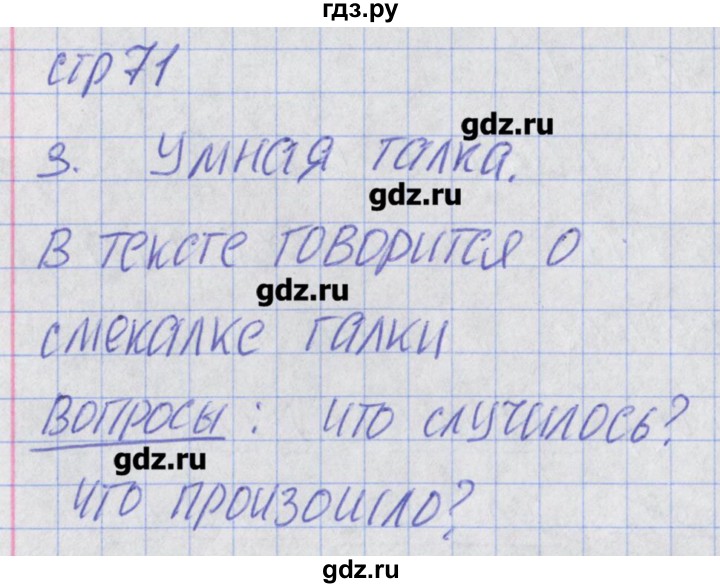 гдз.ру
стр 71
gdz.ru
3. Умная галка.
gdz.ru
В тексте говорится о
gdz.ru
смекалке галки
Вопросы: что случилось?
gdz.ru
что произошло?
gdz.ru